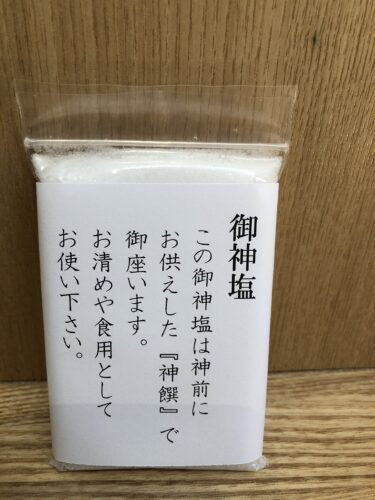 御神塩
この御神塩は神前に
お供えした『神饌』で
御座います。
お清めや食用として
お使い下さい。